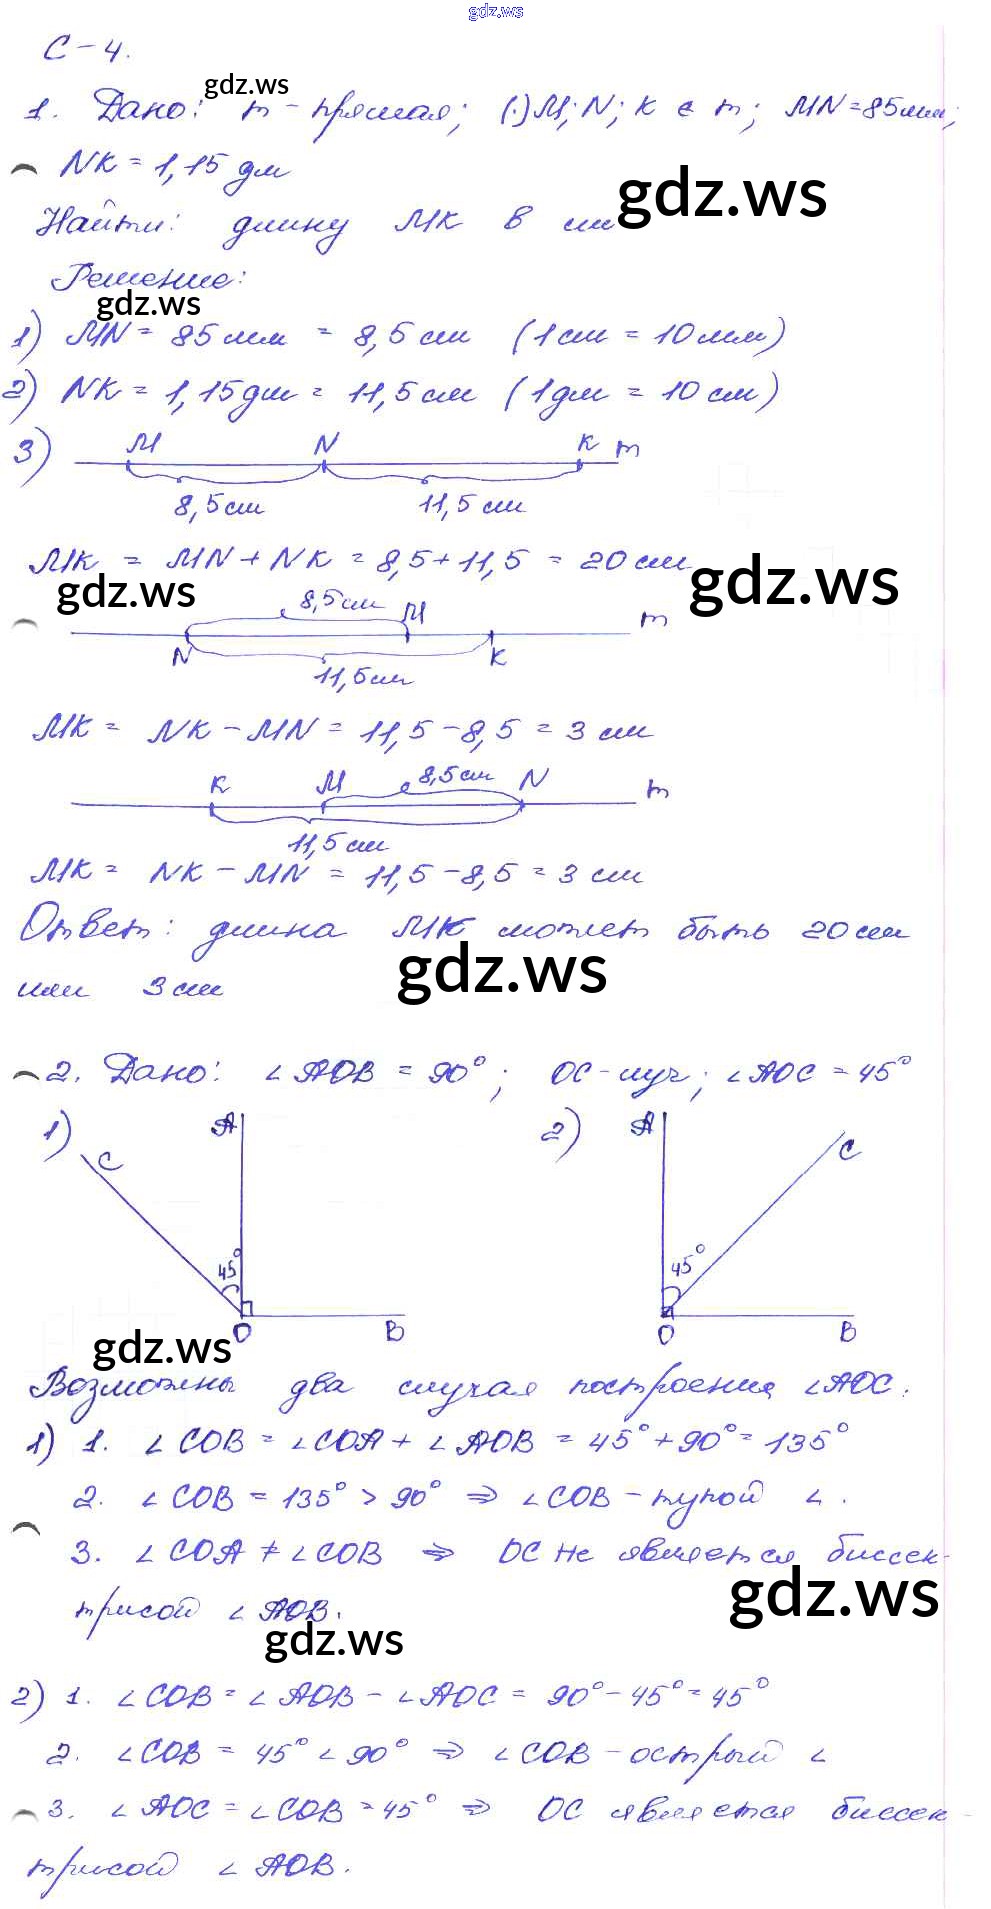 gdz.ws
С-4.
gdz.ws
1. Дано: m-прямая; (·)M; N; K ∈ m; MN=85мм;
NK = 1,15 дм
gdz.ws
Найти: длину MK в см
Решение:
gdz.ws
1) MN = 85 мм = 8,5 см (1см = 10мм)
2) NK = 1,15дм = 11,5 см (1дм = 10 см)
3) M N K m
8,5см 11,5 см
MK = MN + NK = 8,5 + 11,5 = 20 см
gdz.ws
gdz.ws
8,5см M m
N K
11,5см
MK = NK - MN = 11,5 - 8,5 = 3 см
K M 8,5см N m
11,5 см
MK = NK - MN = 11,5 - 8,5 = 3 см
Ответ: длина MK может быть 20см
gdz.ws
или 3 см
2. Дано: ∠AOB = 90°; OC-луч; ∠AOC = 45°
1) A C 45° O B
2) A C 45° O B
gdz.ws
Возможны два случая построения ∠AOC.
1) 1. ∠COB = ∠COA + ∠AOB = 45° + 90° = 135°
2. ∠COB = 135° > 90° ⇒ ∠COB - тупой ∠.
3. ∠COA ≠ ∠COB ⇒ OC не является биссек-
gdz.ws
трисой ∠AOB.
gdz.ws
2) 1. ∠COB = ∠AOB - ∠AOC = 90° - 45° = 45°
2. ∠COB = 45° < 90° ⇒ ∠COB - острый ∠
3. ∠AOC = ∠COB = 45° ⇒ OC является биссек-
трисой ∠AOB.